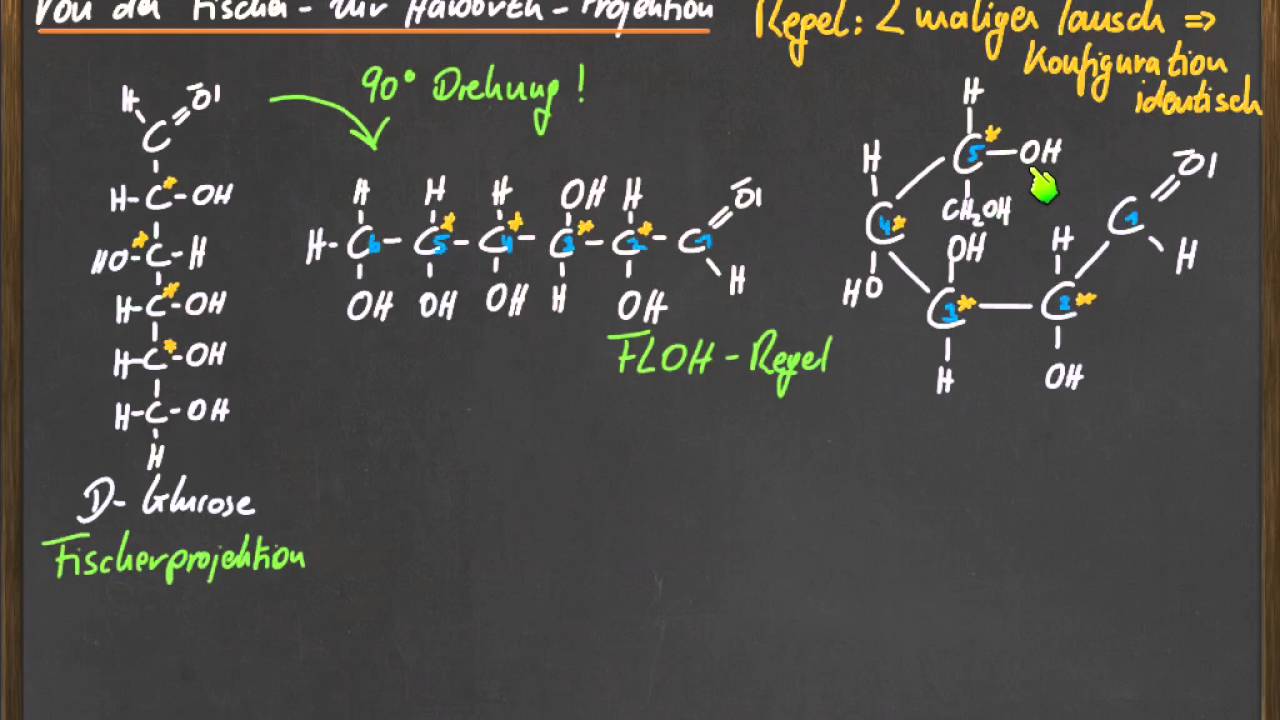 Von der Fischer- zur Haworth-Projektion
Regel: 2 maliger Tausch ⇒
Konfiguration
identisch
90° Drehung!
H O
C
H-C*-OH
HO-*C-H
H-C*-OH
H-C*-OH
H-C-OH
H
D-Glucose
Fischerprojektion
H H H OH H O
H-C6-C5*-C4*-C3*-C2*-C1
OH OH OH H OH H
FLOH-Regel
H
H C5*-OH O
CH2OH C1
C4* OH H H
HO C3* C2*
H OH